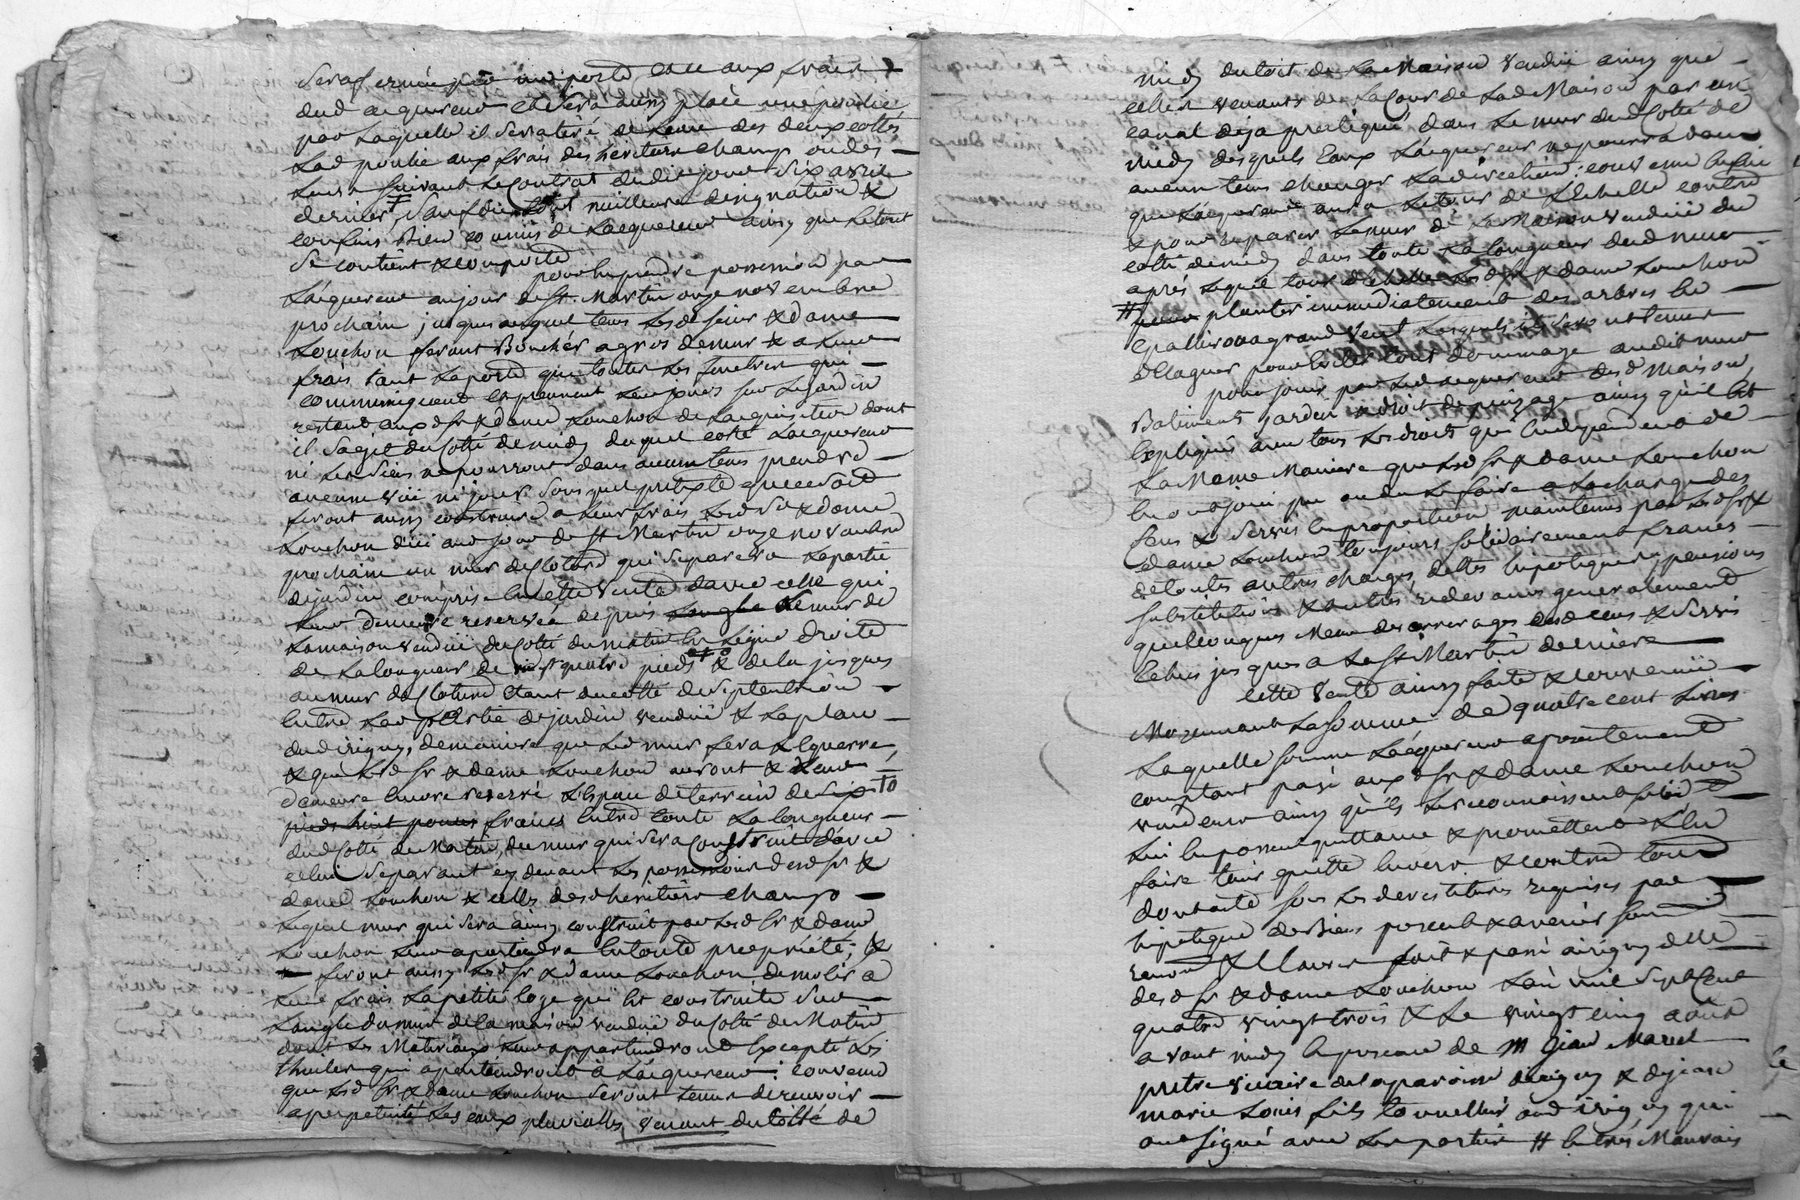 sera fermée par une porte, et ce aux frais
dud acquereur et sera aussy placé une poulie
par laquelle il sera tiré de l'eau des deux cottés
lad poulie aux frais des heritiers champ ou des
leurs suivant le contrat dudit jour six avril
dernier, sauf du tout meilleure designation &
confins bien connus de lacquereur ainsy que le tout
se contient & comporte
pour en prendre possession par
lacquereur au jour de St. Martin onze novembre
prochain jusques auquel tems lesd sieur & dame
Souchon feront Boucher a gros de mur & a leurs
frais tant la porte que toutes les fenetres qui
communiquent et prennent leurs jours sur le jardin
restant aux d sr & dame Souchon de lacquisition dont
il sagit du Cotté de midy duquel cotté lacquereur
ni les siens ne pourront dans aucun tems prendre
aucune vüe ni jour sous quel pretexte que ce soit
feront aussy construire a leurs frais lesd sr & dame
Souchon d'ici aud jour de St Martin onze novembre
prochain un mur de Cloture qui separera la partie
de jardin comprise en cette vente davec celle qui
leur demeure reservée depuis langle du mur de
la maison vendüe du Cotté du matin en ligne droite
de la longueur de vingt quatre pieds & de la jusques
au mur de Cloture etant du cotté de septentrion
entre lad partie de jardin vendüe & la place
dud irigny, de maniere que led mur sera a lequerre,
& que lesd sr & dame Souchon auront & leur
demeure encore reservé lespace de terrein de six
pieds huit pouces francs entre toute la longueur
dud Cotté du Matin, du mur qui sera construit davec
celui separant cy devant les possessions desd sr &
dame Souchon & celles desd heritiers champ
lequel mur qui sera ainsy construit par lesd sr & dame
Souchon leur apartiendra en toute propriété, &
feront aussy lesd sr & dame Souchon demolir a
leurs frais la petite loge qui est construite sur
langle du mur de la maison vendüe du Cotté du Matin
dont les Materiaux leur appartiendront excepté les
thuiles qui apartiendront à lacquereur: convenu
que lesd sr & dame Souchon seront tenus de recevoir
a perpetuité les eaux pluvialles venant du cotté de
midy du toit de la Maison vendüe ainsy que
celles venants de la Cour de lad Maison par un
canal déja pratiqué dans le mur dud Cotté de
midy desquels eaux lacquereur ne pourra dans
aucun tems changer la direction: convenu enfin
que lacquereur aura le tour de lechelle contre
& pour reparer le mur de la Maison vendüe du
cotté de midy dans toute la longueur dud mur
apres lequel tour dechelle lesd sr & dame Souchon
# planter immediatement des arbres en
Espallier ou a grand vent lesquels ils seront tenus
Ellaguer pour éviter tout dommage audit mur
pour jouir par led acquereur desd Maison,
Batiments jardin & droit de puizage ainsy qu'il est
Expliqué avec tous les droits qui en dependent de
la Meme Maniere que lesd sr & dame Souchon
en ont joui pu ou du le faire a la charge des
sens & servis en proportion maintenus par lesd sr &
dame Souchon toujours solidairement francs
de toutes autres charges, dettes hipoteques, pensions
substitutions & autres redevances generalement
quelconques Meme des arrerages desd cens & servis
echus jusques a la St Martin derniere
cette vente ainsy faite & convenüe
Moyennant la somme de quatre cent livres
laquelle somme lacquereur a presentement
comptant payé aux d sr & dame Souchon
vendeurs ainsy qu'ils le reconnoissent
lui en passent quittance & promettent l'en
faire tenir quitte envers & contre tous
dont acte sous les devestitures requises par
hipoteque des biens presents & avenir sous
renon & Clauses fait & passé a irigny
desd sr & dame Souchon lan mil sept Cent
quatre vingt trois & le vingt cinq aoust
avant midy en presence de M jean Marcel
pretre vicaire de la paroisse dirigny & de jean
marie Louis fils tonnellier aud irigny qui
ont signé avec les parties # en tres Mauvais